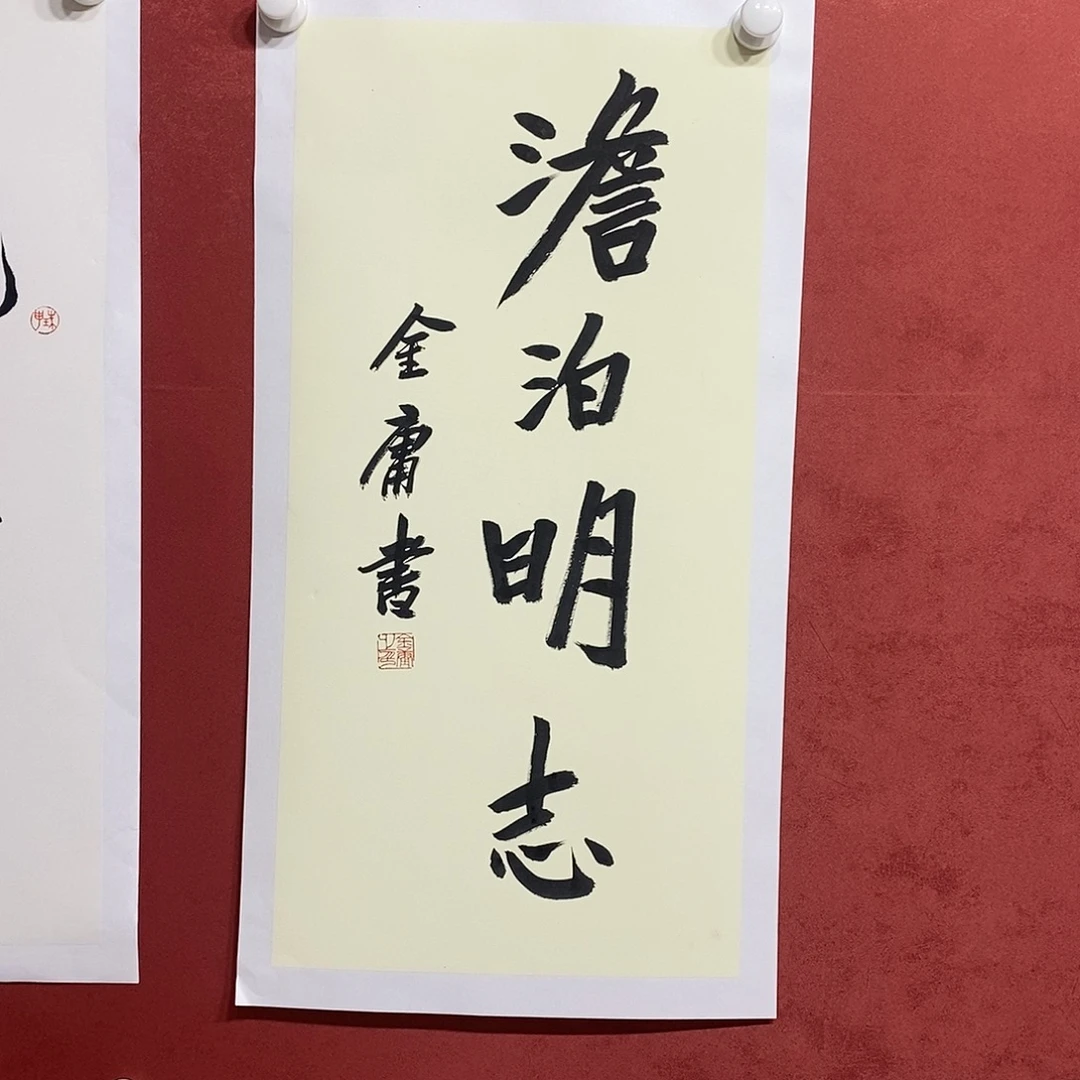 澹泊明志
金庸書